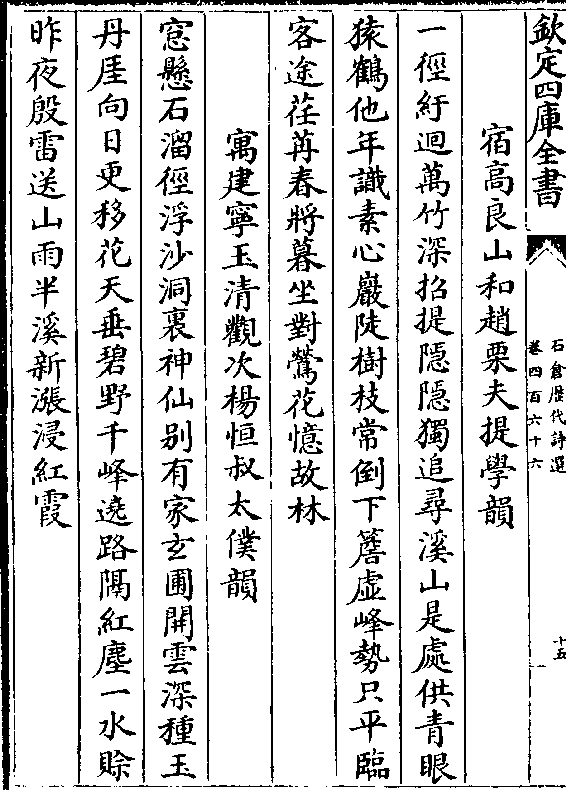 欽定四庫全書
石倉歴代詩選
卷四百六十六
十五
宿高良山和趙栗夫提學韻
一徑紆迴萬竹深招提隱隱獨追尋溪山是處供青眼
猿鶴他年識素心巖陡樹枝常倒下簷虛峰勢只平臨
客途荏苒春將暮坐對鶯花憶故林
寓建寧玉清觀次楊恒叔太僕韻
窓懸石溜徑浮沙洞裏神仙别有家玄圃開雲深種玉
丹厓向日更移花天垂碧野千峰遶路隔紅塵一水賖
昨夜殷雷送山雨半溪新漲浸紅霞